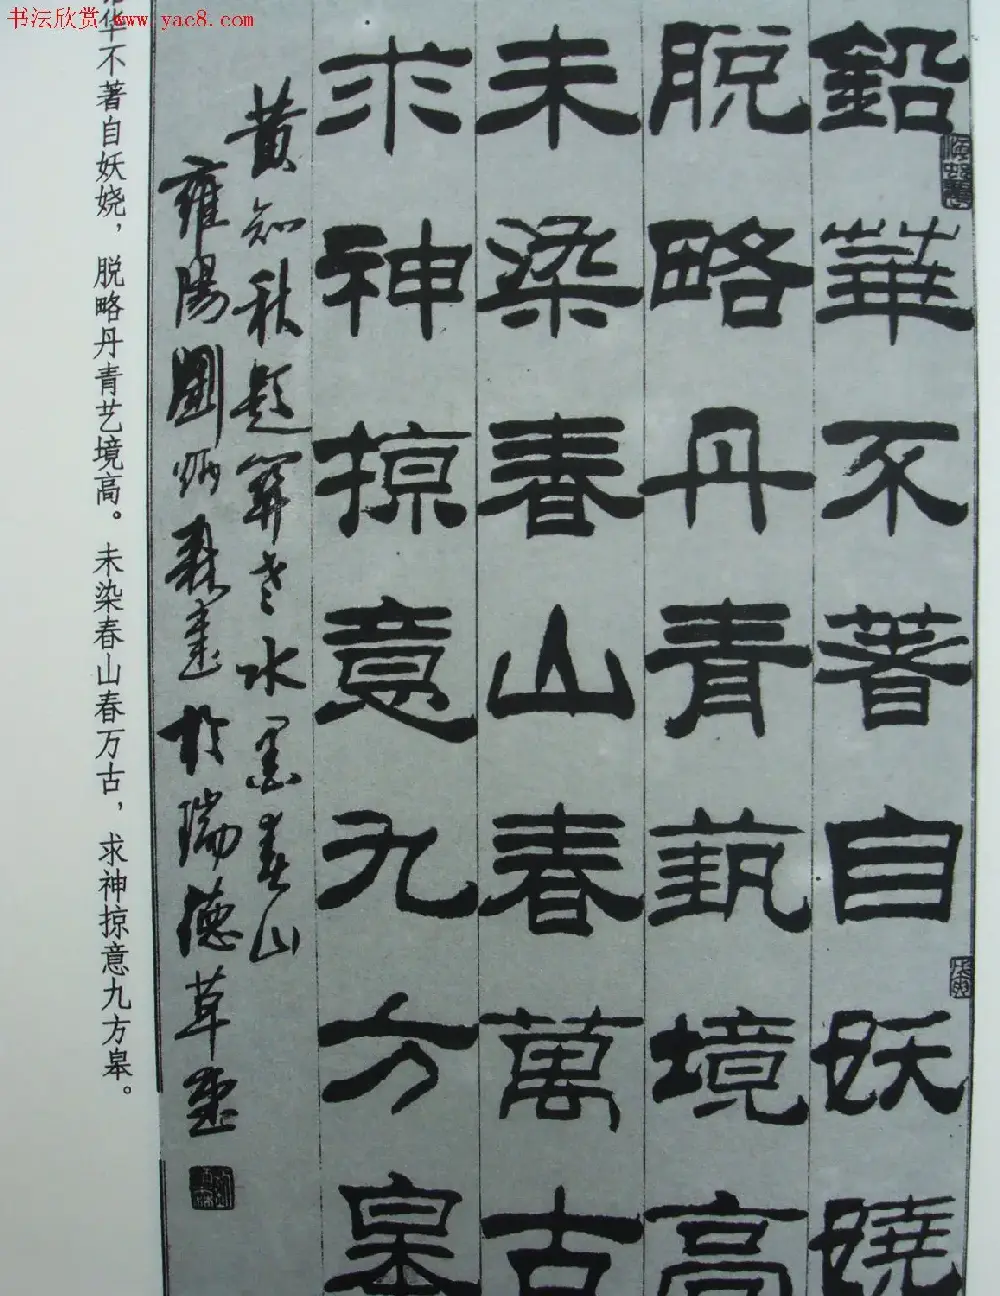 书法欣赏 www.yac8.com
鉛華不著自妖嬈
脱略丹青藝境高
未染春山春萬古
求神掠意九方皋
黄知秋題羿老水墨春山
雍陽劉炳森書於瑞德草廬
华不著自妖娆，脱略丹青艺境高。未染春山春万古，求神掠意九方皋。